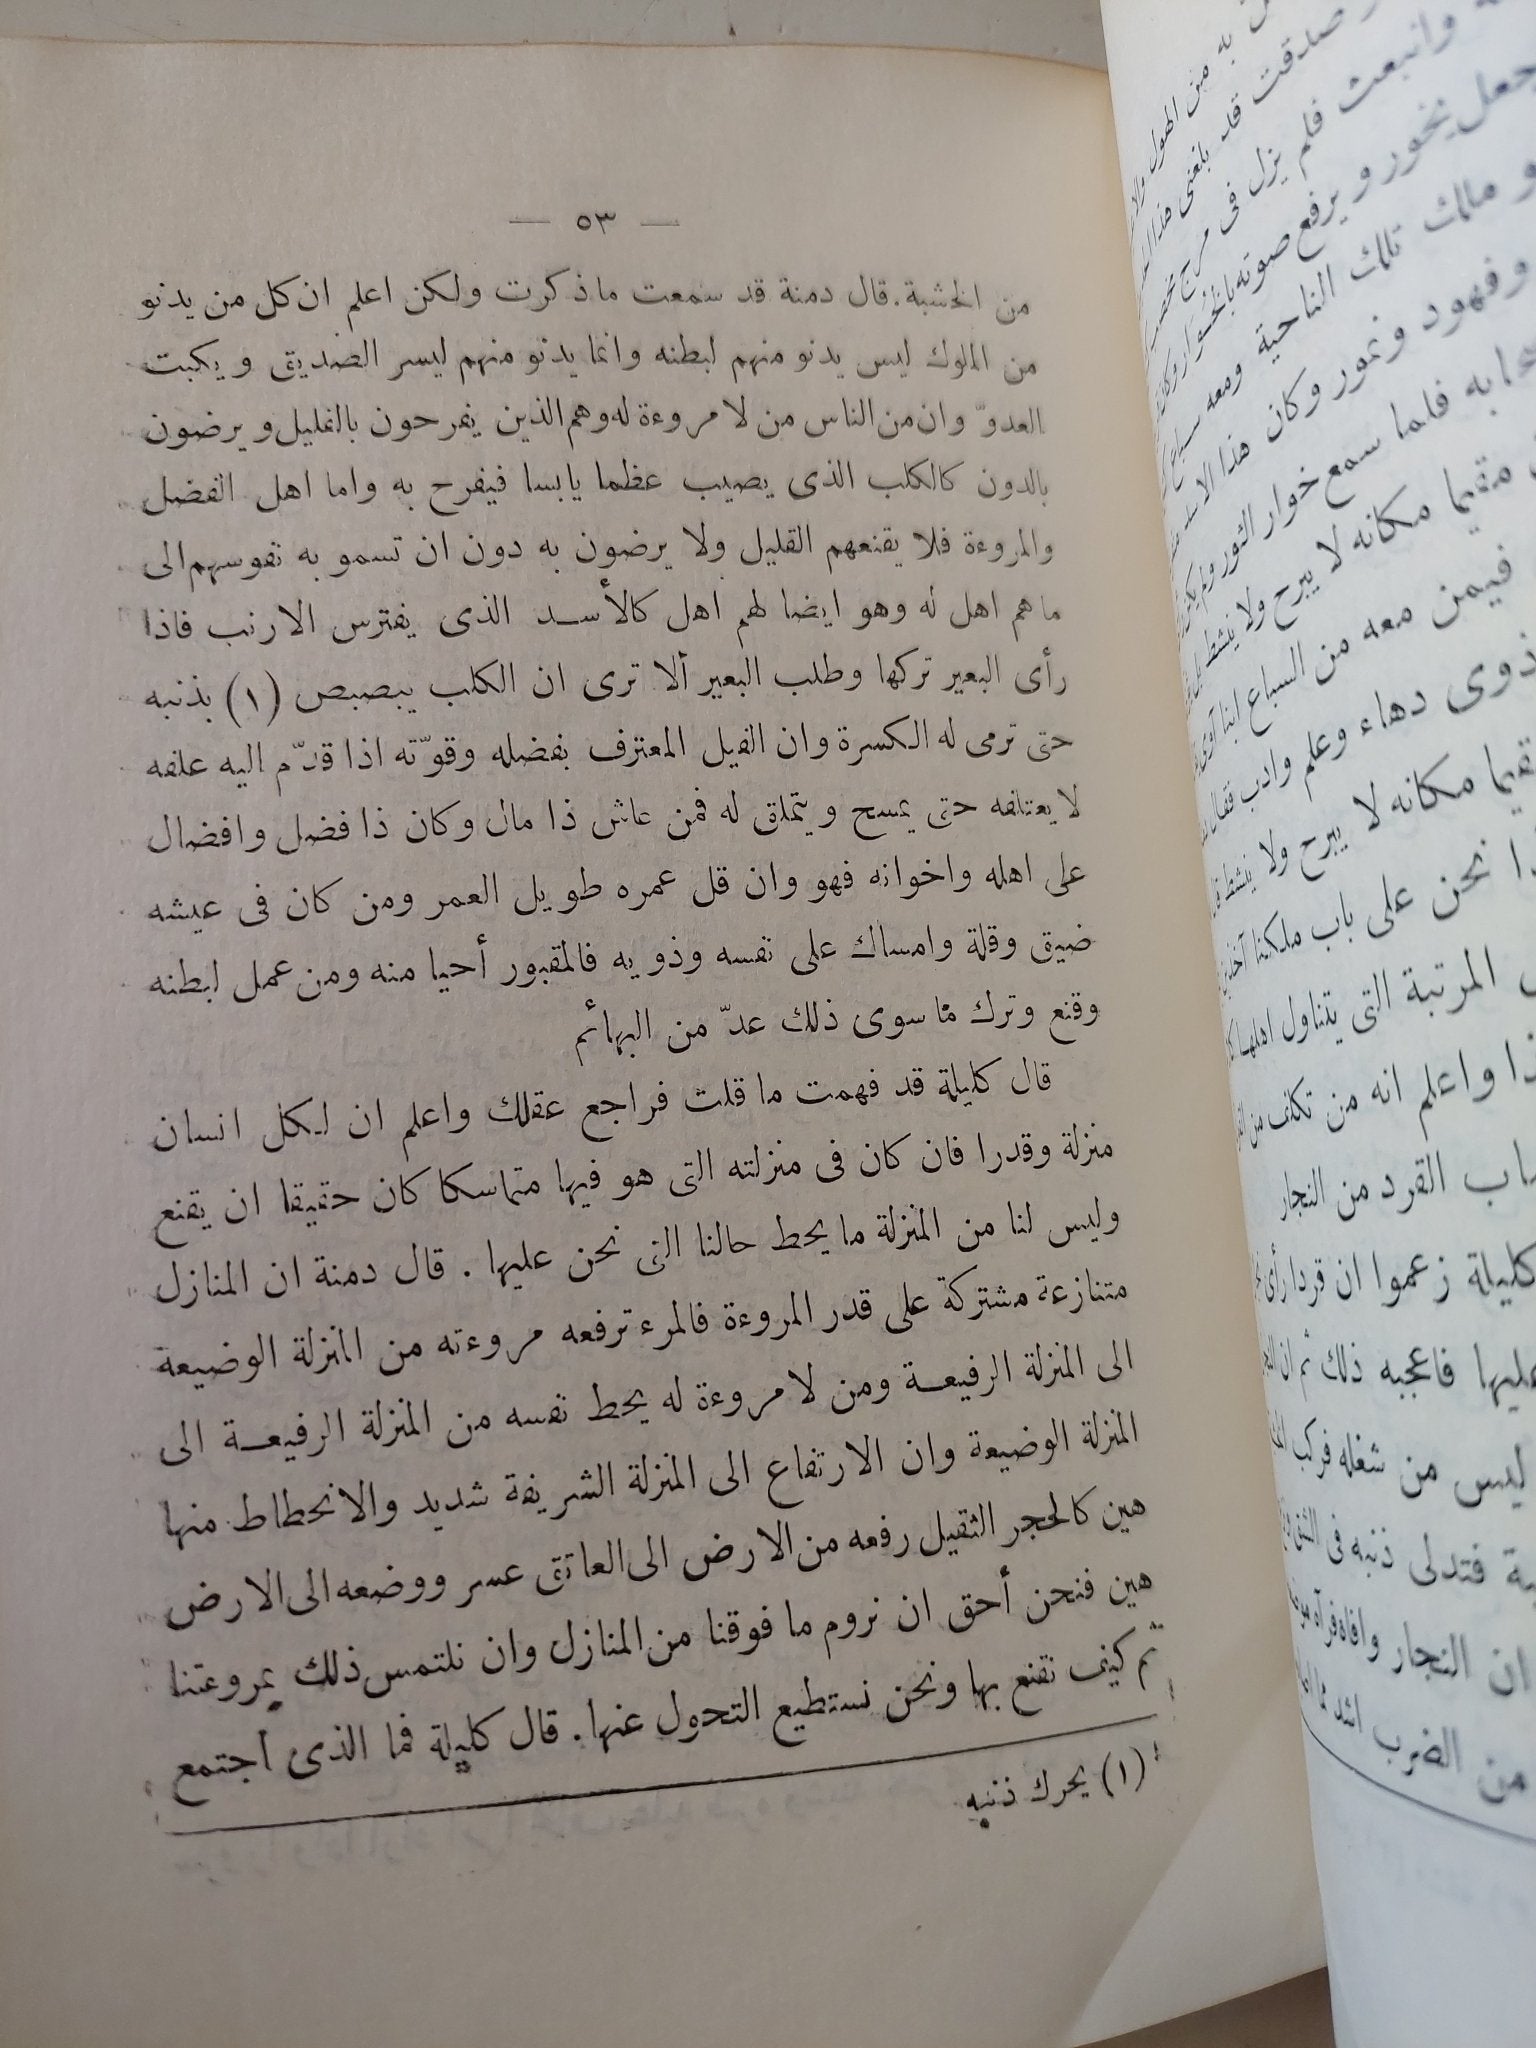 — ٥٣ —
من الخشبة. قال دمنة قد سمعت ما ذكرت ولكن اعلم ان كل من يدنو
من الملوك ليس يدنو منهم لبطنه وانما يدنو منهم ليسر الصديق ويكبت
العدوّ وان من الناس من لا مروءة له وهم الذين يفرحون بالقليل ويرضون
بالدون كالكلب الذى يصيب عظما يابسا فيفرح به واما اهل الفضل
والمروءة فلا يقنعهم القليل ولا يرضون به دون ان تسمو به نفوسهم الى
ما هم اهل له وهو ايضا لهم اهل كالأسد الذى يفترس الارنب فاذا
رأى البعير تركها وطلب البعير ألا ترى ان الكلب يبصبص (١) بذنبه
حتى ترمى له الكسرة وان الفيل المعترف بفضله وقوّته اذا قدّم اليه علفه
لا يعتلفه حتى يمسح ويتملق له فمن عاش ذا مال وكان ذا فضل وافضال
على اهله واخوانه فهو وان قل عمره طويل العمر ومن كان فى عيشه
ضيق وقلة وامساك على نفسه وذويه فالمقبور أحيا منه ومن عمل لبطنه
وقنع وترك ما سوى ذلك عدّ من البهائم
قال كليلة قد فهمت ما قلت فراجع عقلك واعلم ان لكل انسان
منزلة وقدرا فان كان فى منزلته التى هو فيها متماسكا كان حقيقا ان يقنع
وليس لنا من المنزلة ما يحط حالنا التى نحن عليها . قال دمنة ان المنازل
متنازعة مشتركة على قدر المروءة فالمرء ترفعه مروءته من المنزلة الوضيعة
الى المنزلة الرفيعة ومن لا مروءة له يحط نفسه من المنزلة الرفيعة الى
المنزلة الوضيعة وان الارتفاع الى المنزلة الشريفة شديد والانحطاط منها
هين كالحجر الثقيل رفعه من الارض الى العاتق عسر ووضعه الى الارض
هين فنحن أحق ان نروم ما فوقنا من المنازل وان نلتمس ذلك بمروءتنا
ثم كيف نقنع بها ونحن نستطيع التحول عنها. قال كليلة فما الذى اجتمع
(١) يحرك ذنبه
به من الهول
صدقت قد بلغنى هذا
وانبعث فلم يزل فى مرج
جعل يخور ويرفع صوته بالخوار وكان
ملك تلك الناحية ومعه سباع
وفهود ونمور وكان هذا الاسد
به فلما سمع خوار الثور ولم يكن
مقيما مكانه لا يبرح ولا ينشط
فيمن معه من السباع ابنا آوى
ذوى دهاء وعلم وادب فقال
مكانه لا يبرح ولا ينشط
نحن على باب ملكنا آخذين
المرتبة التى يتناول اهلها
واعلم انه من تكلف من
القرد من النجار
كليلة زعموا ان قردا رأى
عليها فاعجبه ذلك ثم ان
ليس من شغله فركب
فتدلى ذنبه فى الشق
ان النجار وافاه فرآه
من الضرب اشد مما